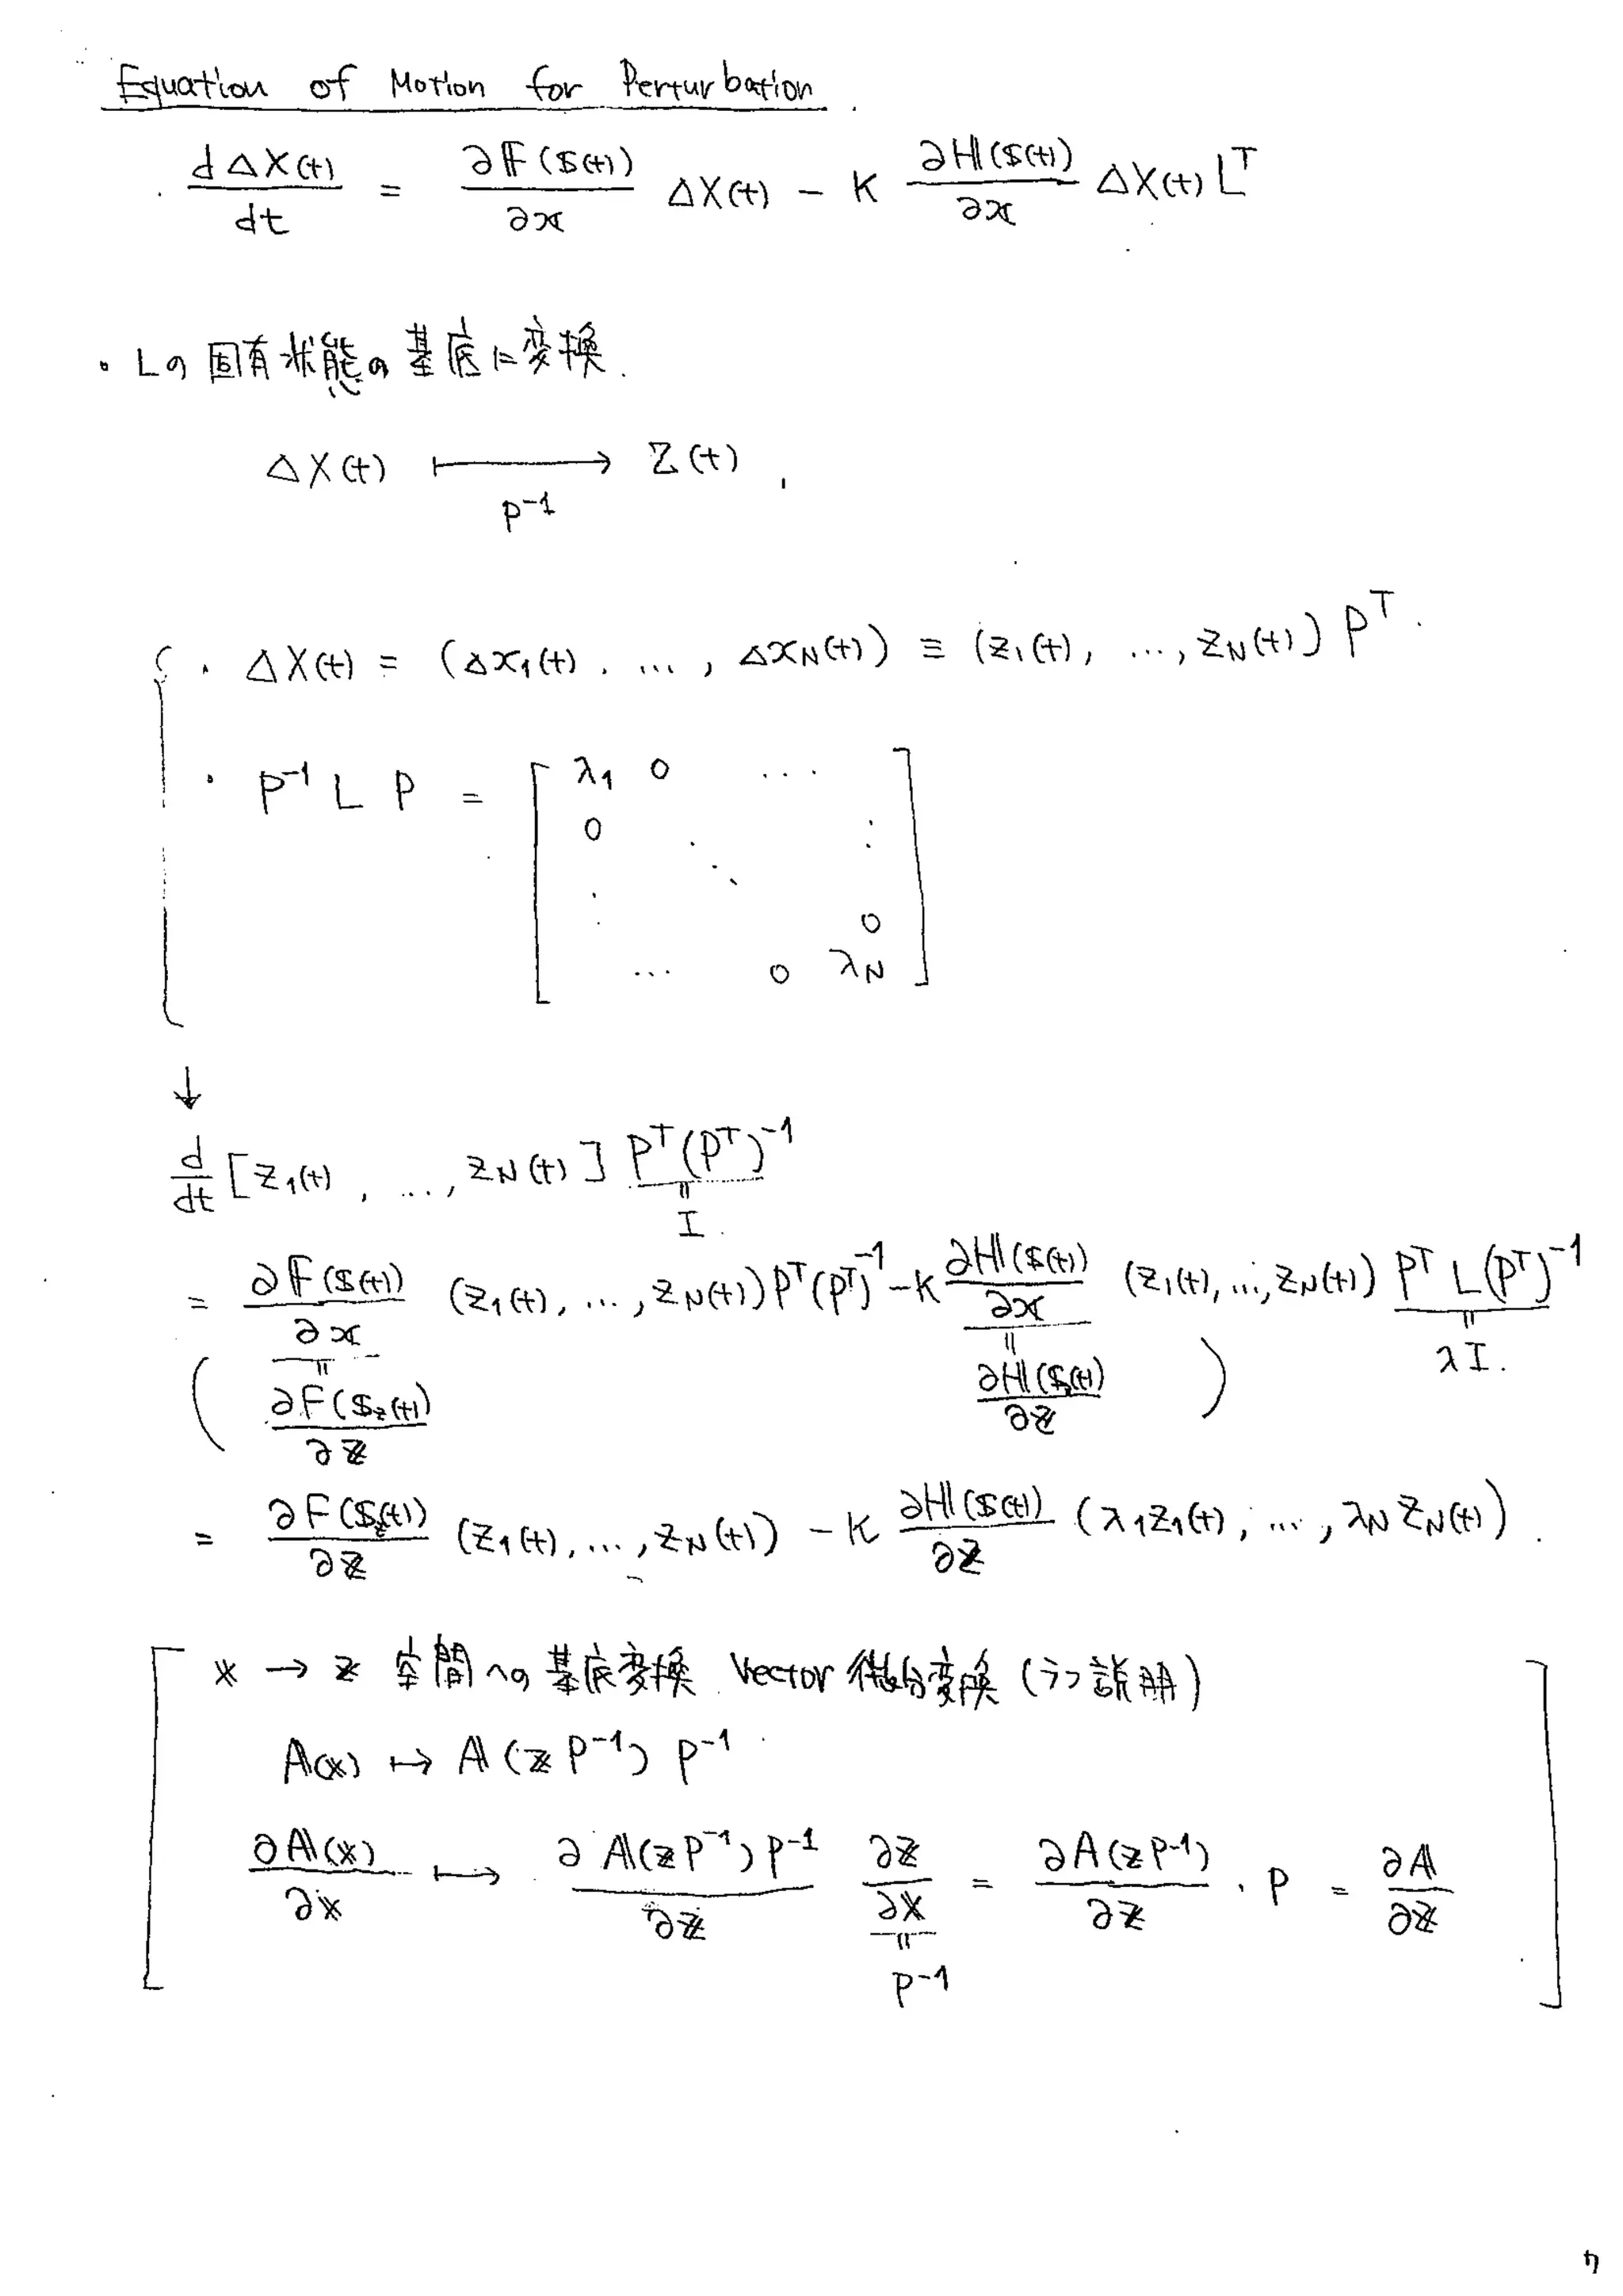 Equation of Motion for Perturbation.
・ dΔX(t)/dt = ∂𝔽($(t))/∂x ΔX(t) − K ∂ℍ($(t))/∂x ΔX(t) L^T
・Lの固有状態の基底に変換.
ΔX(t) ⟼ Z(t),
P^-1
・ΔX(t) = (Δx₁(t), ..., Δx_N(t)) ≡ (z₁(t), ..., z_N(t)) P^T.
・P^-1 L P = [ λ₁ 0 ...
0 ⋱ ⋮
⋮ 0
... 0 λ_N ]
↓
d/dt [z₁(t), ..., z_N(t)] P^T(P^T)^-1
‖
I.
= ∂𝔽($(t))/∂x (z₁(t), ..., z_N(t)) P^T(P^T)^-1 − K ∂ℍ($(t))/∂x (z₁(t), ..., z_N(t)) P^T L(P^T)^-1
‖ ‖ ‖
( ∂F($_z(t))/∂z ∂ℍ($_z(t))/∂z ) λI.
= ∂F($_z(t))/∂z (z₁(t), ..., z_N(t)) − K ∂ℍ($(t))/∂z (λ₁z₁(t), ..., λ_N z_N(t)).
x → z 空間への基底変換. Vector 微分変換 (説明)
A(x) ↦ A(z P^-1) P^-1
∂A(x)/∂x ⟼ ∂A(z P^-1) P^-1/∂z ∂z/∂x = ∂A(z P^-1)/∂z · P = ∂A/∂z
‖
P^-1